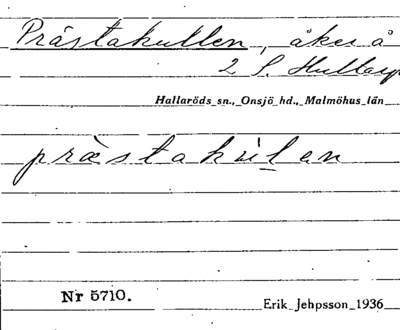 Prästakullen, åker å
2 S. Hullarp
Hallaröds sn., Onsjö hd., Malmöhus län
præstakụlan
Nr 5710.
Erik Jehpsson 1936